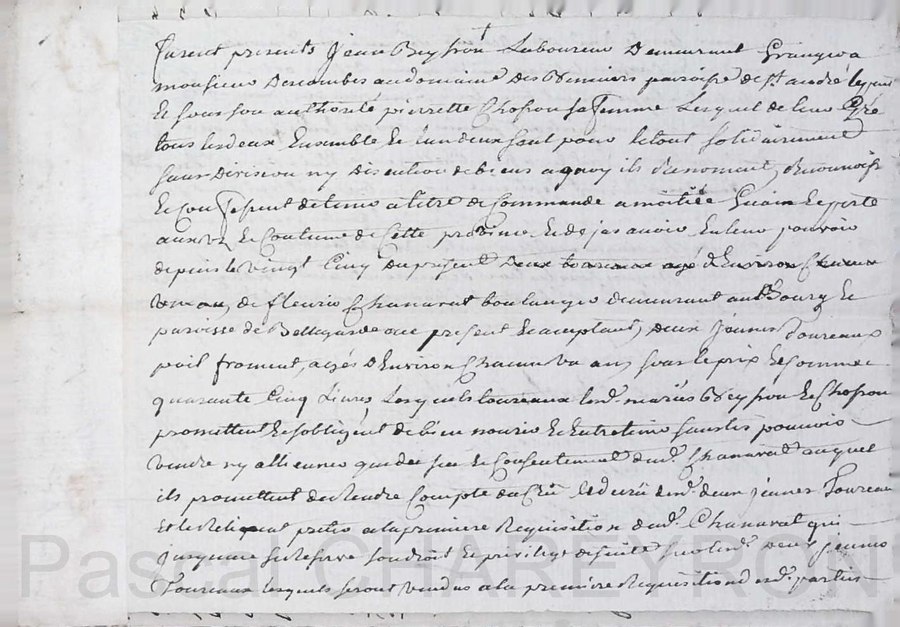 furent presents Jean Beysson Laboureur Demeurant Granger a
monsieur Descombes au domaine des paroisse de St andré le puis
Et sous son authorité pierrette Chosson sa femme Lesquel de leur Gré
tous les deux Ensemble Et l'un deux seul pour le tout solidairement
sans Division ny Discution de biens a quoy ils Renoncent,
Et Confessent detenir a titre de Commande a moitiée Guain Et perte
aux uz Et Coutume de Cette province Et de ja avoir En leur pouvoir
depuis le vingt Cinq du present deux toreaux agé d'Environ Chacun
un an, de fleurie Chanavat boulanger demeurant au Bourg Et
paroisse de Bellegarde ace present Et aceptant, deux jeunes Toureaux
poil froment, agés D'Environ Chacun un an, sous le prix Et somme
quarante Cinq Livres Lesquels toureaux lesd. mariés Beysson Et Chosson
promettent Et sobligent de bien nourir Et Entretenir sans les pouvoir
vendre ny allienner que de Et Consentement dud. Chanavat auquel
ils promettent de Rendre Compte du Crû desd. deux jeunes Toureaux
Et le Reliquat a la premiere Requisition dud. Chanavat qui
jusqu'une se Reserve son droit Et privilege de suite sur lesd. deux jeunes
Toureaux lesquels seront vendus a la premiere Requisition desd. parties
Pascal CHAREYRON